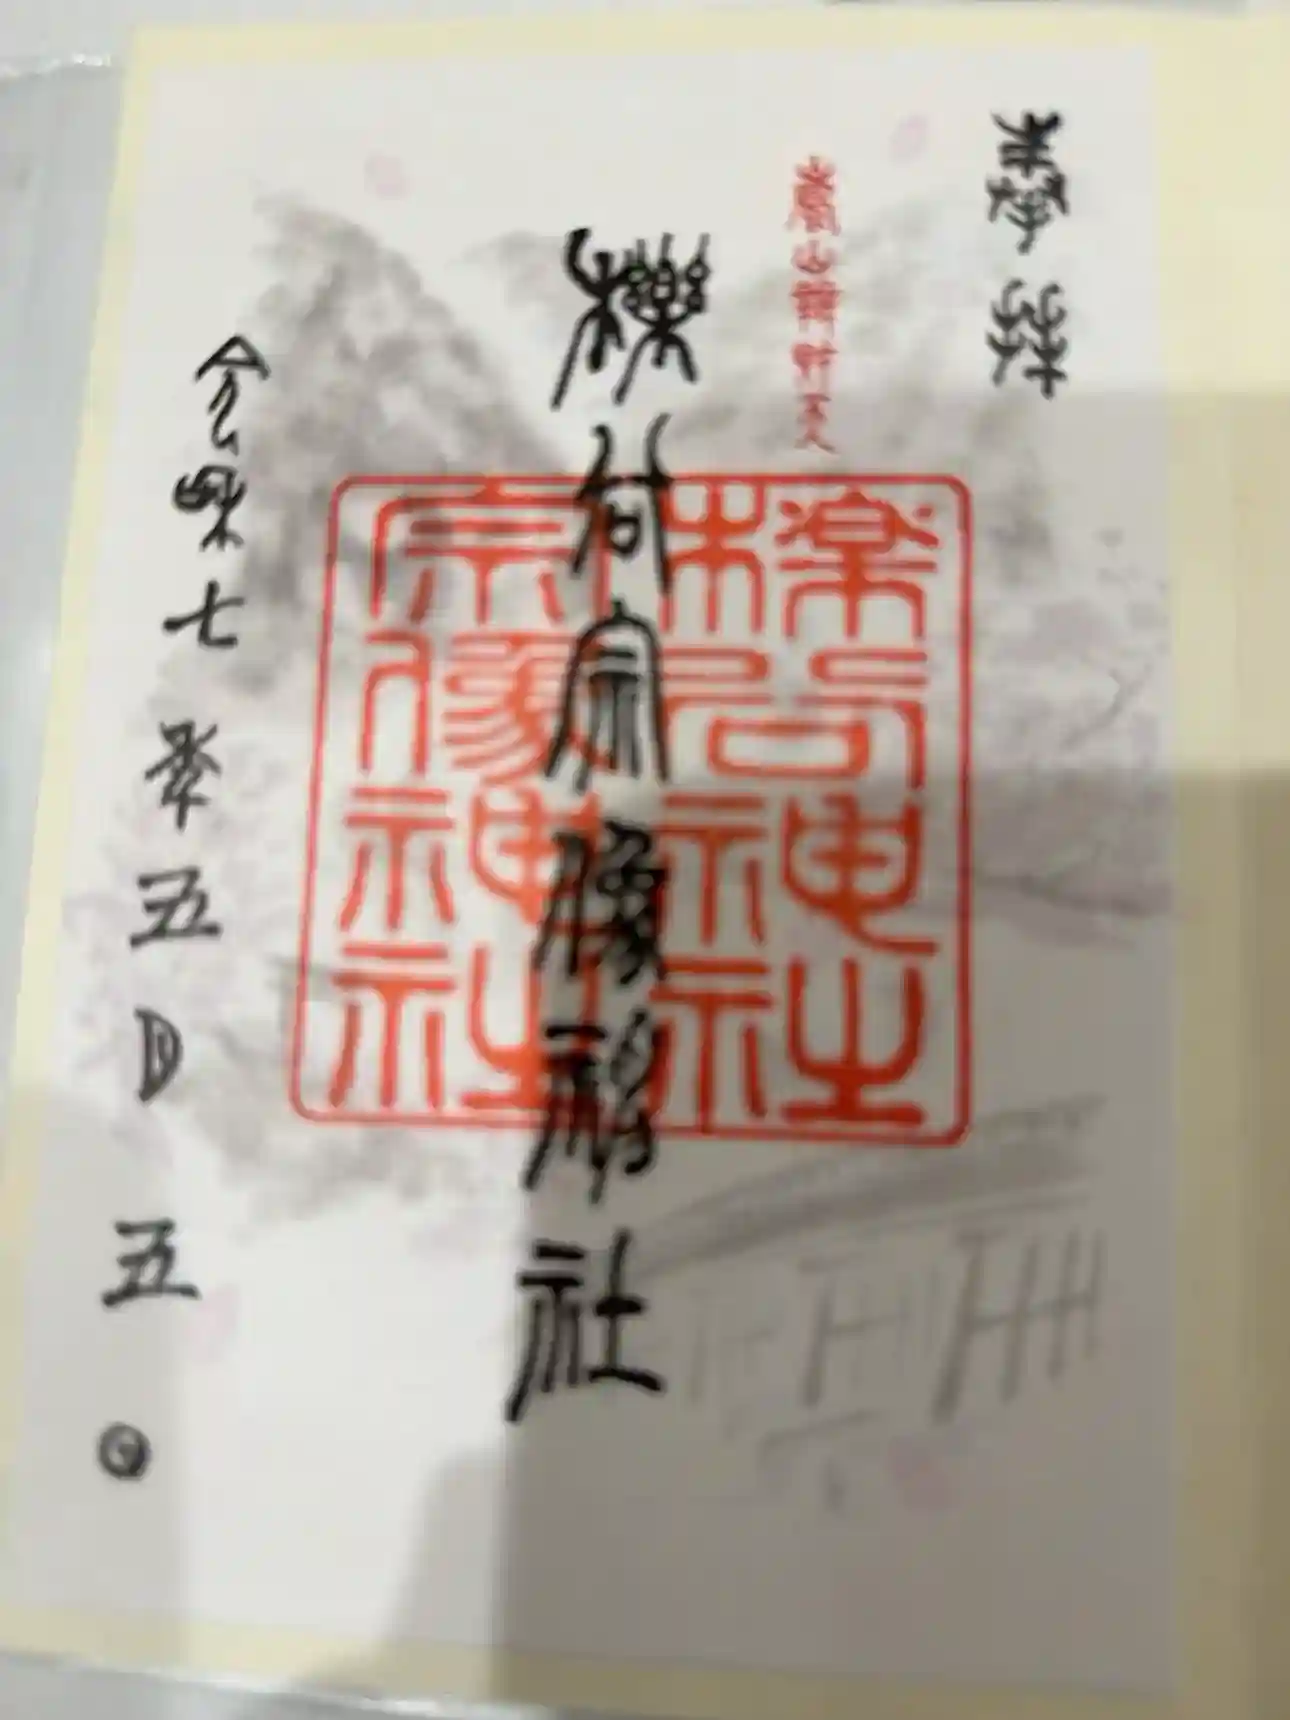 奉拝
嵐山辯財天
櫟谷宗像神社
櫟谷神社
宗像神社
令和七年五月五日